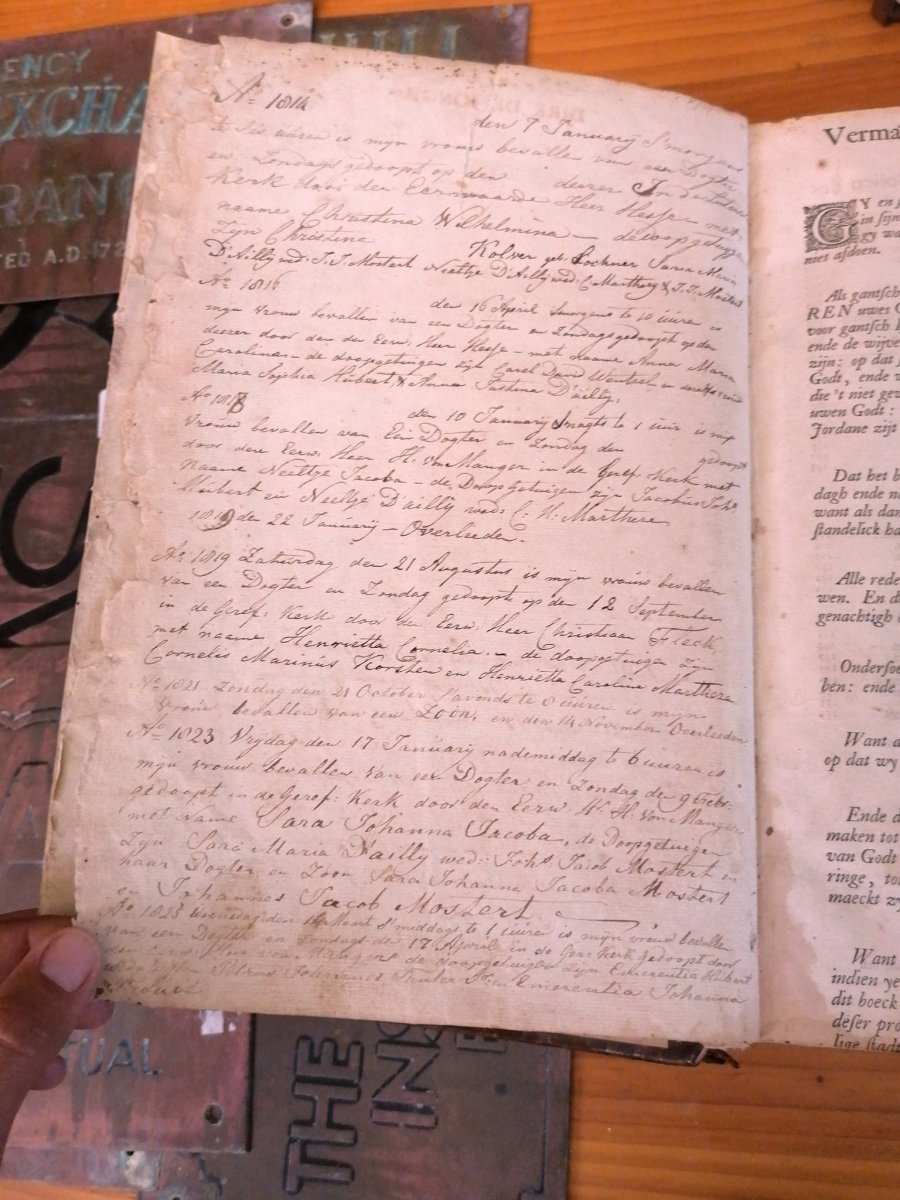 ENCY
EXCHA
RANC
TED A.D. 172
Ao 1814
den 7 Januarij Smorgens
te ses uuren is mijn vrouw bevallen van een Dogter
en Zondags gedoopt op den deezer in de
Kerk door den Eerwaarde Heer Hesse met
naame Christina Wilhelmina – de doopgetuigen
Zijn Christina Kolver geb: Lochner Sara Maria
D'Ailly wed: J. J. Mostert Neeltje D'Ailly wed: C Marthezz & J. J. Mostert
Ao 1816
den 16 April Smorgens te 10 uuren is
mijn vrouw bevallen van een Dogter en Zondags gedoopt op den
deezer door den Eerw: Heer Hesse – met naame Anna Maria
Carolina – de doopgetuigen zijn Carel David Wentzel en
Maria Sophia Hubert, & Anna Justina D'ailly.
Ao 1818
den 10 Januarij Snagts te 1 uur is mijn
Vrouw bevallen van Een Dogter en Zondag den gedoopt
door den Eerw. Heer H. von Manger in de Geref: Kerk met
Naame Neeltje Jacoba – de Doopgetuigen zijn Jacobus Johs
Hubert en Neeltje D'ailly wed: C. H. Martheze
1819 den 22 Januarij – Overleeden.
Ao 1819 Zaturdag den 21 Augustus is mijn vrouw bevallen
van een Dogter en Zondag gedoopt op den 12 September
in de Geref: Kerk door den Eerw: Heer Christiaan Fleck
met naame Henrietta Cornelia. – de doopgetuigen Zijn
Cornelis Marinus Korsten en Henrietta Carolina Martheze
Ao 1821 Zondag den 21 October Savonds te 8 uuren is mijn
Vrouw bevallen van een Zoon, en den 14 November Overleeden
Ao 1823 Vrijdag den 17 Januarij nademiddag te 6 uuren is
mijn vrouw bevallen van een Dogter en Zondag de 9 Febr:
gedoopt in de Geref: Kerk door den Eerw: Hr H. von Manger
met Name Sara Johanna Jacoba, de Doopgetuige
Zijn Sara Maria D'ailly wed: Johs Jacob Mostert en
haar Dogter en Zoon Sara Johanna Jacoba Mostert
en Johannes Jacob Mostert
Ao 1825 Woensdag den 16 Maart Smiddags te 1 uuren is mijn vrouw bevallen
van een Dogter en Zondags de 17 April in de Ger: Kerk gedoopt door
den Heer von Manger de doopgetuigen Zijn Emerentia Hubert
Petrus Johannes Truter en Emerentia Johanna
Verma
GY en s
in sijn
gy wa
niet afdoen.
Als gantsch
REN uwes G
voor gantsch I
ende de wijve
zijn: op dat s
Godt, ende v
die 't niet gev
uwen Godt:
Jordane zijt
Dat het b
dagh ende na
want als dan
standelick ha
Alle rede
wen. En d
genachtigh
Ondersoe
ben: ende
Want a
op dat wy
Ende d
maken tot
van Godt
ringe, to
maeckt zy
Want
indien ye
dit boeck
deser pro
lige stadt
TUAL
THE
INS